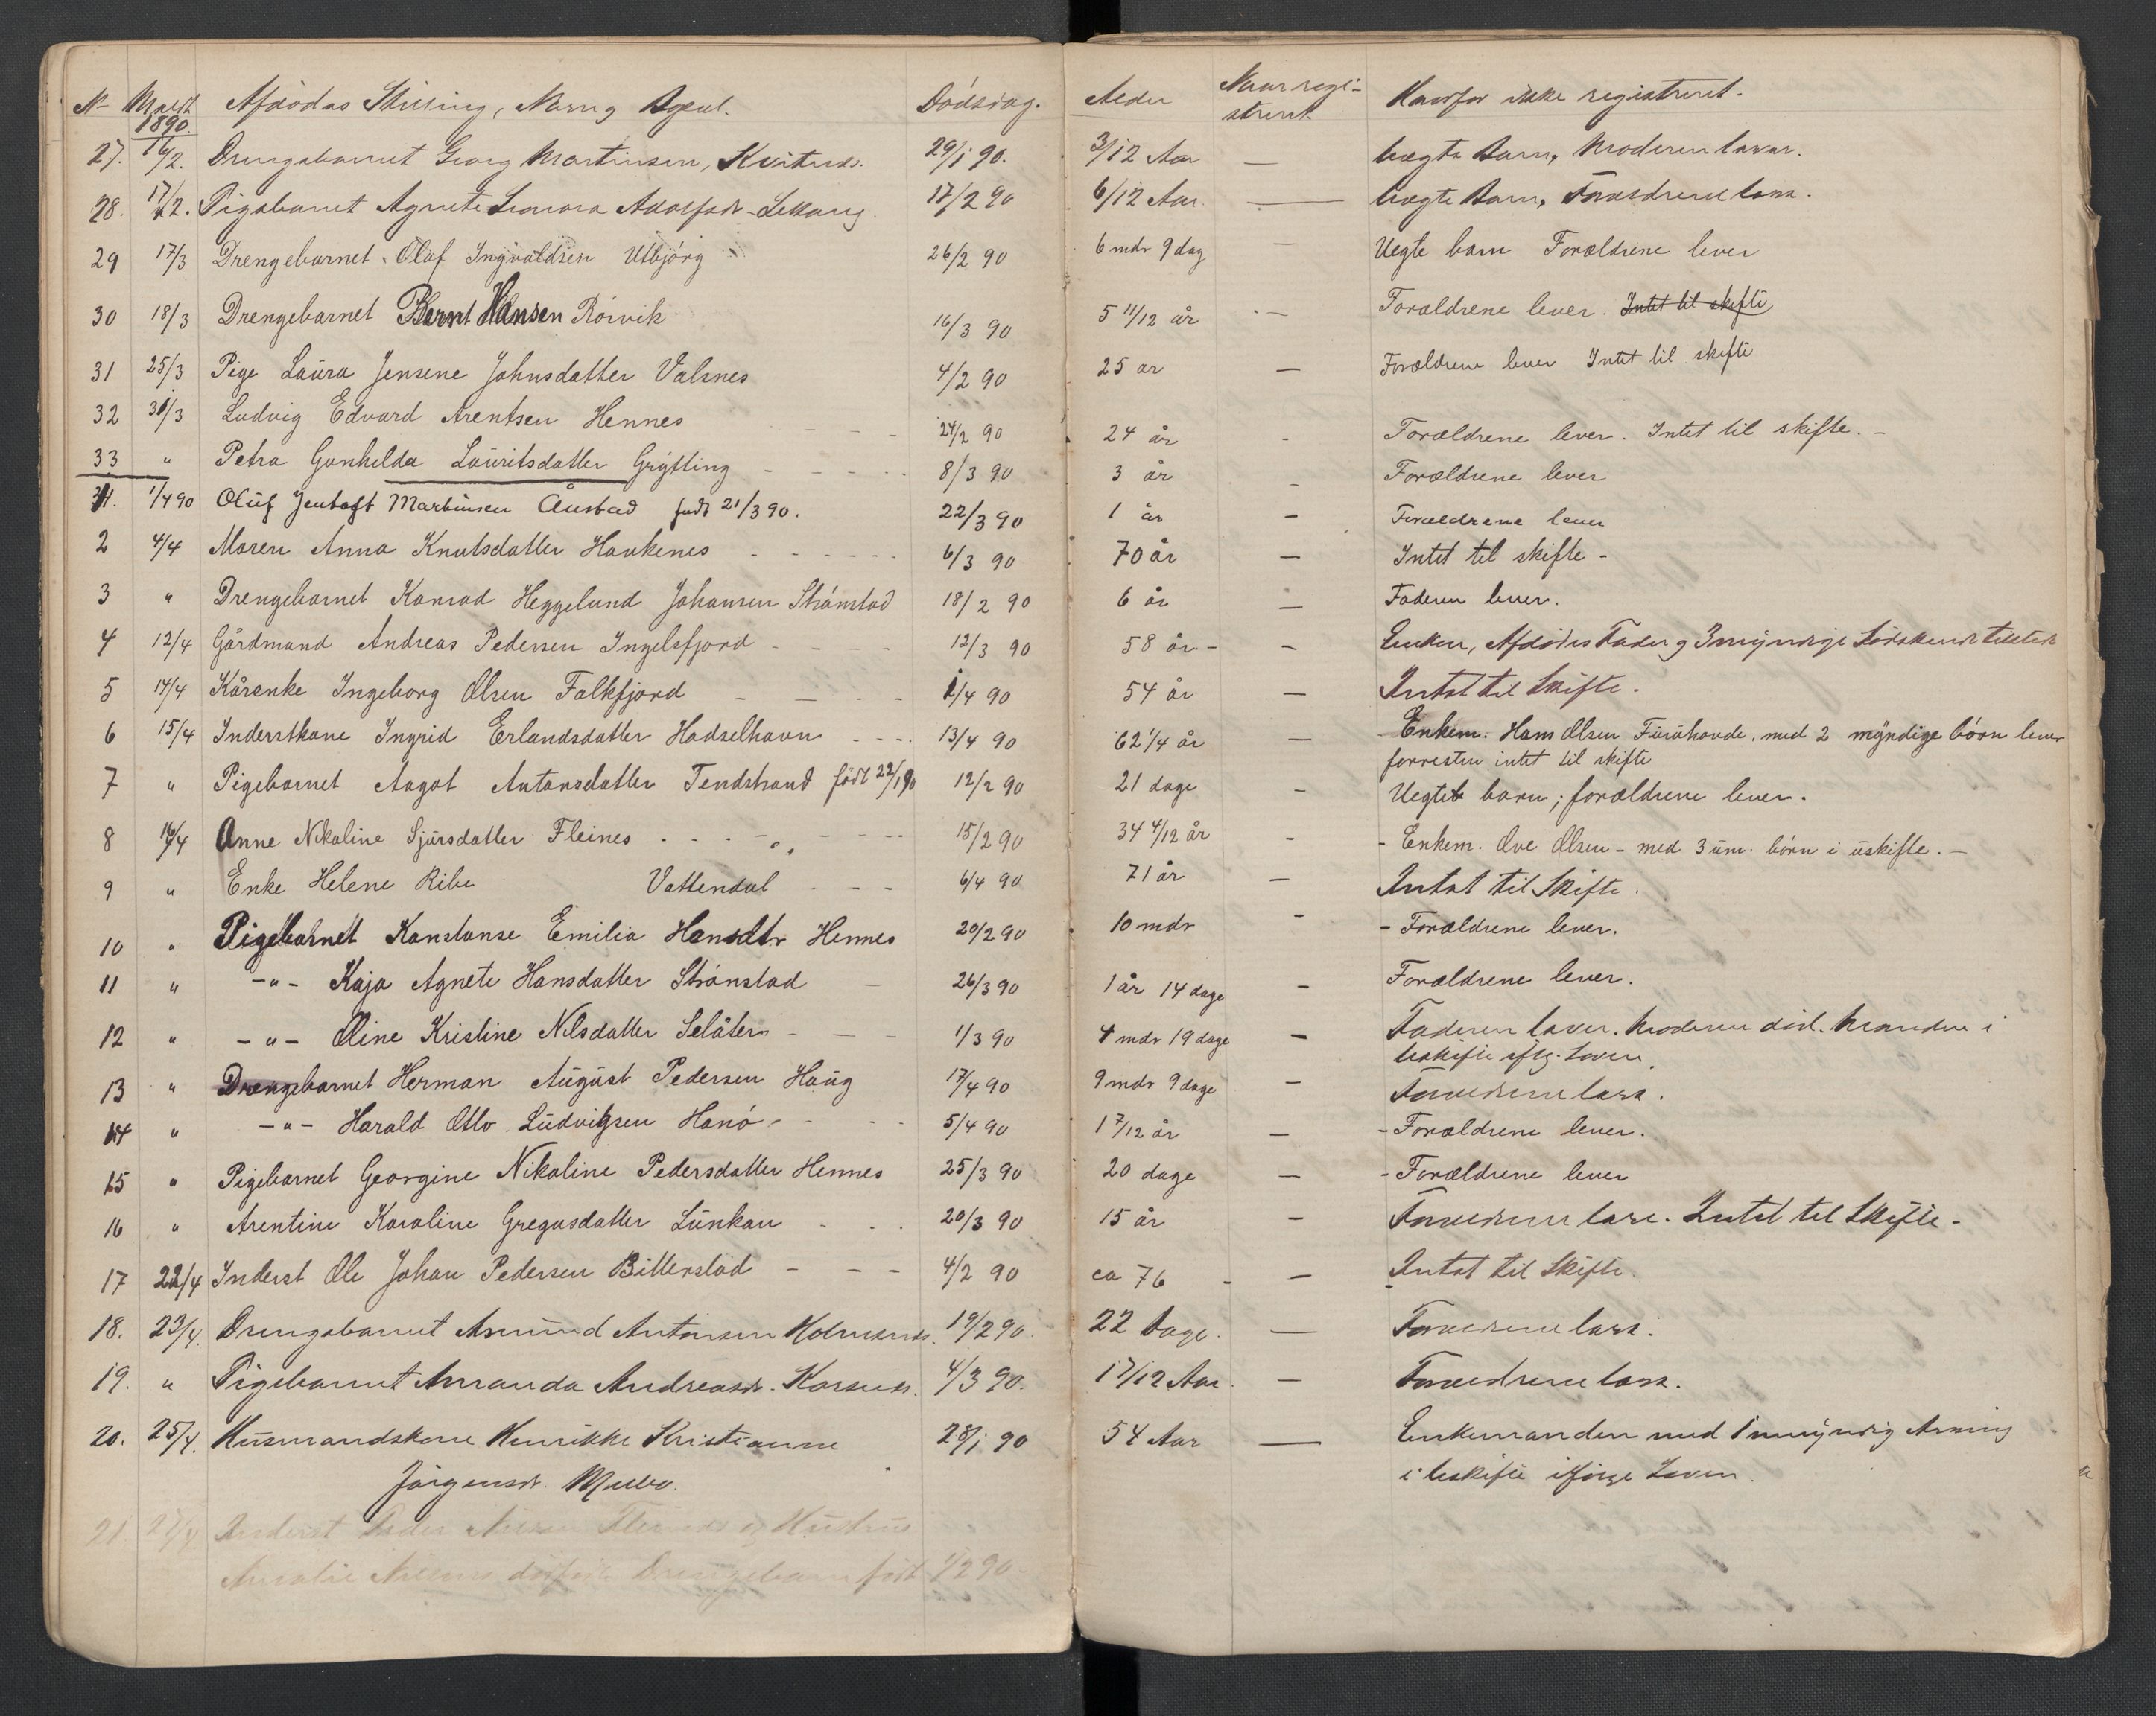 No Meldt Afdødes Stilling, Navn og Bopæl. Dødsdag. Alder Naar regi- Hvorfor ikke registreret.
1890. streret
27. 16/2. Drengebarnet Georg Martinsen, Kvitnes. 29/1 90. 3/12 Aar — Uægte Barn, Moderen lever.
28. 17/2. Pigebarnet Agnete Leonora Adolfsdr. Lekang. 17/2 90 6/12 Aar — Uægte Barn, Forældrene leve.
29 17/3 Drengebarnet Olaf Ingvaldsen Utbjørg 26/2 90 6 mdr 9 dag — Uegte barn Forældrene lever
30 18/3 Drengebarnet Bernt Hansen Rörvik 16/3 90 5 11/12 år — Forældrene lever. Intet til skifte
31 25/3 Pige Laura Jensine Johnsdatter Valsnes 4/2 90 25 ar — Forældrene lever Intet til skifte
32 31/3 Ludvig Edvard Arentsen Hennes 24/2 90 24 år - Forældrene lever. Intet til skifte. -
33 " Petra Gunhilda Lauritsdatter Grytting 8/3 90 3 år - Forældrene lever
1. 1/4 90 Oluf Jentoft Martinsen Åustad født 21/3 90. 22/3 90 1 år - Forældrene lever
2 4/4 Maren Anna Knutsdatter Haukenes 6/3 90 70 år — Intet til skifte -
3 " Drengebarnet Konrad Heggelund Johansen Strönstad 18/2 90 6 år — Faderen lever.
4 12/4 Gårdmand Andreas Pedersen Ingelsfjord 12/3 90 58 år - - Enken, Afdødes Fader og 3 myndige Södskende
5 14/4 Kårenke Ingeborg Olsen Falkfjord 1/4 90 54 år — Intet til Skifte.
6 15/4 Inderstkone Ingrid Erlandsdatter Hadselhavn 13/4 90 62 1/4 år — Enkem. Hans Olsen Furuhovde. med 2 myndige börn lever
forresten intet til skifte
7 " Pigebarnet Aagot Antonsdatter Tendstrand född 22/1 90 12/2 90 21 dage - Uegte barn; forældrene lever.
8 16/4 Anne Nikoline Sjursdatter Fleines 15/2 90 34 4/12 år - - Enkem. Ove Olsen - med 3 um. börn i uskifte. —
9 " Enke Helene Ribe Vattendal 6/4 90 71 år — Intet til Skifte.
10 " Pigebarnet Konstanse Emilie Hansdtr Hennes 20/2 90 10 mdr - - Forældrene lever.
11 " -"- Kaja Agnete Hansdatter Strönstad 26/3 90 1 år 14 dage - Forældrene lever.
12 " -"- Oline Kristine Nilsdatter Selåter 1/3 90 4 mdr 19 dage - Faderen lever. Moderen död. Manden i
Uskifte iflg. Loven.
13 " Drengebarnet Herman August Pedersen Haug 17/4 90 9 mdr 9 dage - Forældrene leve.
14 " -"- Harald Otto Ludvigsen Hanö 5/4 90 1 7/12 år — - Forældrene lever.
15 " Pigebarnet Georgine Nikoline Pedersdatter Hennes 25/3 90 20 dage — - Forældrene lever
16 " Arentine Karoline Gregusdatter Lunkan 20/3 90 15 år - Forældrene leve. Intet til Skifte -
17 22/4 Inderst Ole Johan Pedersen Bitterstad 4/2 90 ca 76 - — Intet til Skifte.
18. 23/4. Drengebarnet Asmund Antonsen Holmsnes. 19/2 90. 22 Dage. — Forældrene leve.
19. " Pigebarnet Amanda Andreasdr. Korsnes. 4/3 90. 1 7/12 Aar. — Forældrene leve.
20. 25/4. Husmandskone Henrikke Kristianne 28/1 90 54 Aar — Enkemanden med 1 umyndig Arving
Jörgensdr. Melbo. i Uskifte ifölge Loven.
21. 27/4 Inderst Peder Hustrus
Amalie Drengebarn född 1/2 90